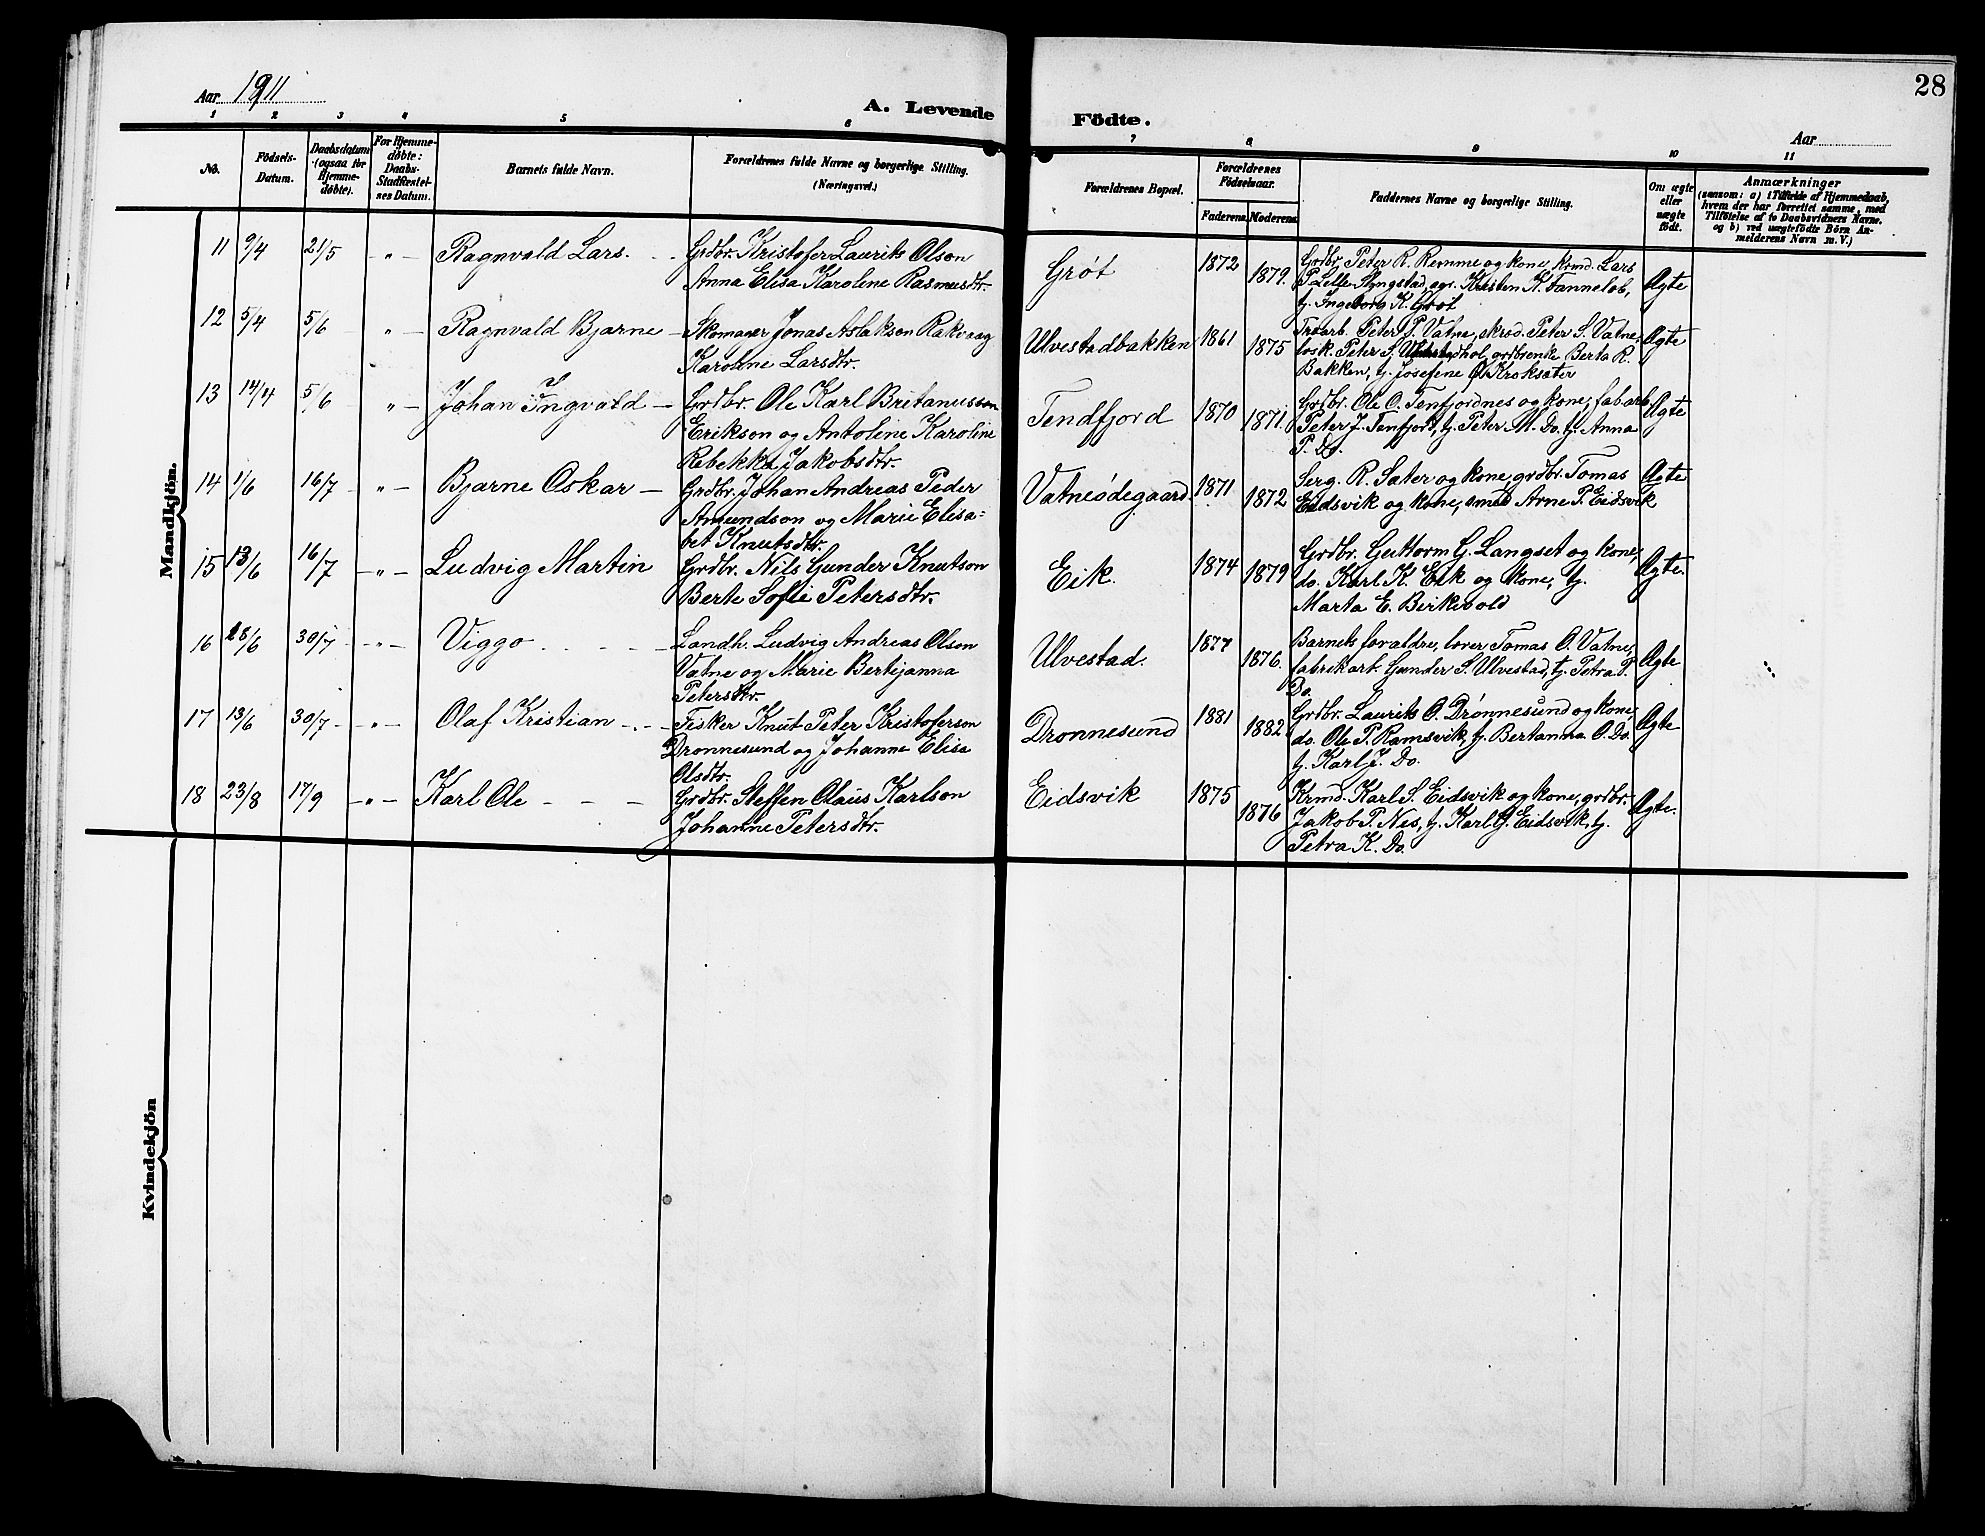 28
Aar 1911
A. Levende Födte.
Aar
1 2 3 4 5 6 7 8 9 10 11
No.
Födsels-Datum.
Daabsdatum (ogsaa for Hjemme-døbte).
For Hjemme-døbte: Daabs-Stadfæstel-ses Datum.
Barnets fulde Navn.
Forældrenes fulde Navne og borgerlige Stilling. (Næringsvei.)
Forældrenes Bopæl.
Forældrenes Födselsaar.
Faderens. Moderens.
Faddernes Navne og borgerlige Stilling.
Om ægte eller uægte födt.
Anmærkninger
(saasom: a) i Tilfælde af Hjemmedaab,
hvem der har forrettet samme, med
Tilföielse af to Daabsvidners Navne.
og b) ved uægtefödte Börn An-
melderens Navn m. V.)
Mandkjön.
11 9/4 21/5 - " - Ragnvald Lars. Grdbr. Kristofer Laurits Olson
Anna Elisa Karoline Rasmusdtr.
Grøt 1872 1879.
Grdbr. Peter R. Remme og kone, krmd. Lars
P. Slyngstad, Kristen K. Tannelöb,
tj. Ingeborg K. Grøt
Ægte
12 5/4 5/6 - " - Ragnvald Bjarne Skomager Jonas Aslakson Rakvaag
Karoline Larsdtr.
Ulvestadbakken 1861 1875
Peter P. Vatne, Peter S. Vatne,
Peter S. grdbrenke Berta R.
Bakken, tj. Josefine Kroksæter
Ægte
13 14/4 5/6 " - Johan Ingvald Grdbr. Ole Karl Britanusson
Erikson og Antoline Karoline
Rebekka Jakobsdtr.
Tendfjord 1870 1871.
Grdbr. Ole O. Tenfjordnes og kone, fabarb.
Peter J. Tenfjord, tj. Peter M. Do. tj. Anna
P. Do.
Ægte
14 1/6 16/7 - " - Bjarne Oskar Grdbr. Johan Andreas Peder
Amundson og Marie Elisa-
bet Knutsdtr.
Vatneødegaard. 1871. 1872
Serg. R. Sæter og kone, grdbr. Tomas
Eidsvik og kone, smed Arne P. Eidsvik
Ægte
15 13/6 16/7 - " - Ludvig Martin Grdbr. Nils Gunder Knutson
Berte Sofie Petersdtr.
Eik. 1874 1879
Grdbr. Guttorm G. Langset og kone,
do. Karl K. Eik og kone, tj.
Marta E. Birkevold
Ægte.
16 18/6 30/7 - " - Viggo Landh. Ludvig Andreas Olson
Vatne og Marie Bertejanna
Petersdtr.
Ulvestad. 1877 1876.
Barnets forældre, lærer Tomas O. Vatne,
fabrikarb. Gunder S. Ulvestad, tj. Petra P.
Do.
Ægte
17 13/6 30/7 " - Olaf Kristian Fisker Knut Peter Kristoferson
Drønnesund og Johanne Elisa
Olsdtr.
Drønnesund 1881 1882
Grdbr. Laurits O. Drønnesund og kone,
do. Ole P. Ramsvik, tj. Bertanna O. Do.
tj. Karl J. Do.
Ægte
18 23/8 17/9 - " - Karl Ole Grdbr. Steffen Olaus Karlson
Johanne Petersdtr.
Eidsvik 1875 1876
Krmd. Karl S. Eidsvik og kone, grdbr.
Jakob P. Nes, tj. Karl J. Eidsvik, tj.
Petra K. Do.
Ægte.
Kvindekjön